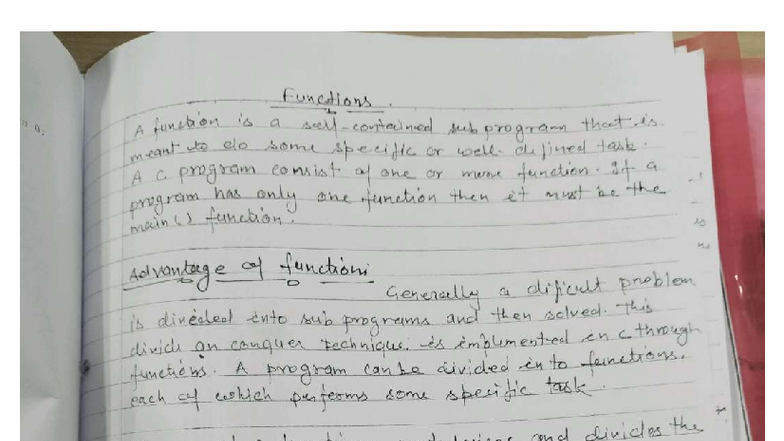 Functions.
A function is a self-contained sub program that is
meant to do some specific or well-defined task.
A C program consist of one or more function. If a
program has only one function then it must be the
main() function.
Advantage of functions
Generally a dificult problem
is divided into sub programs and then solved. This
divide an conquer technique is implemented in C through
functions. A program can be divided in to functions.
each of which performs some specific task.
and divides the